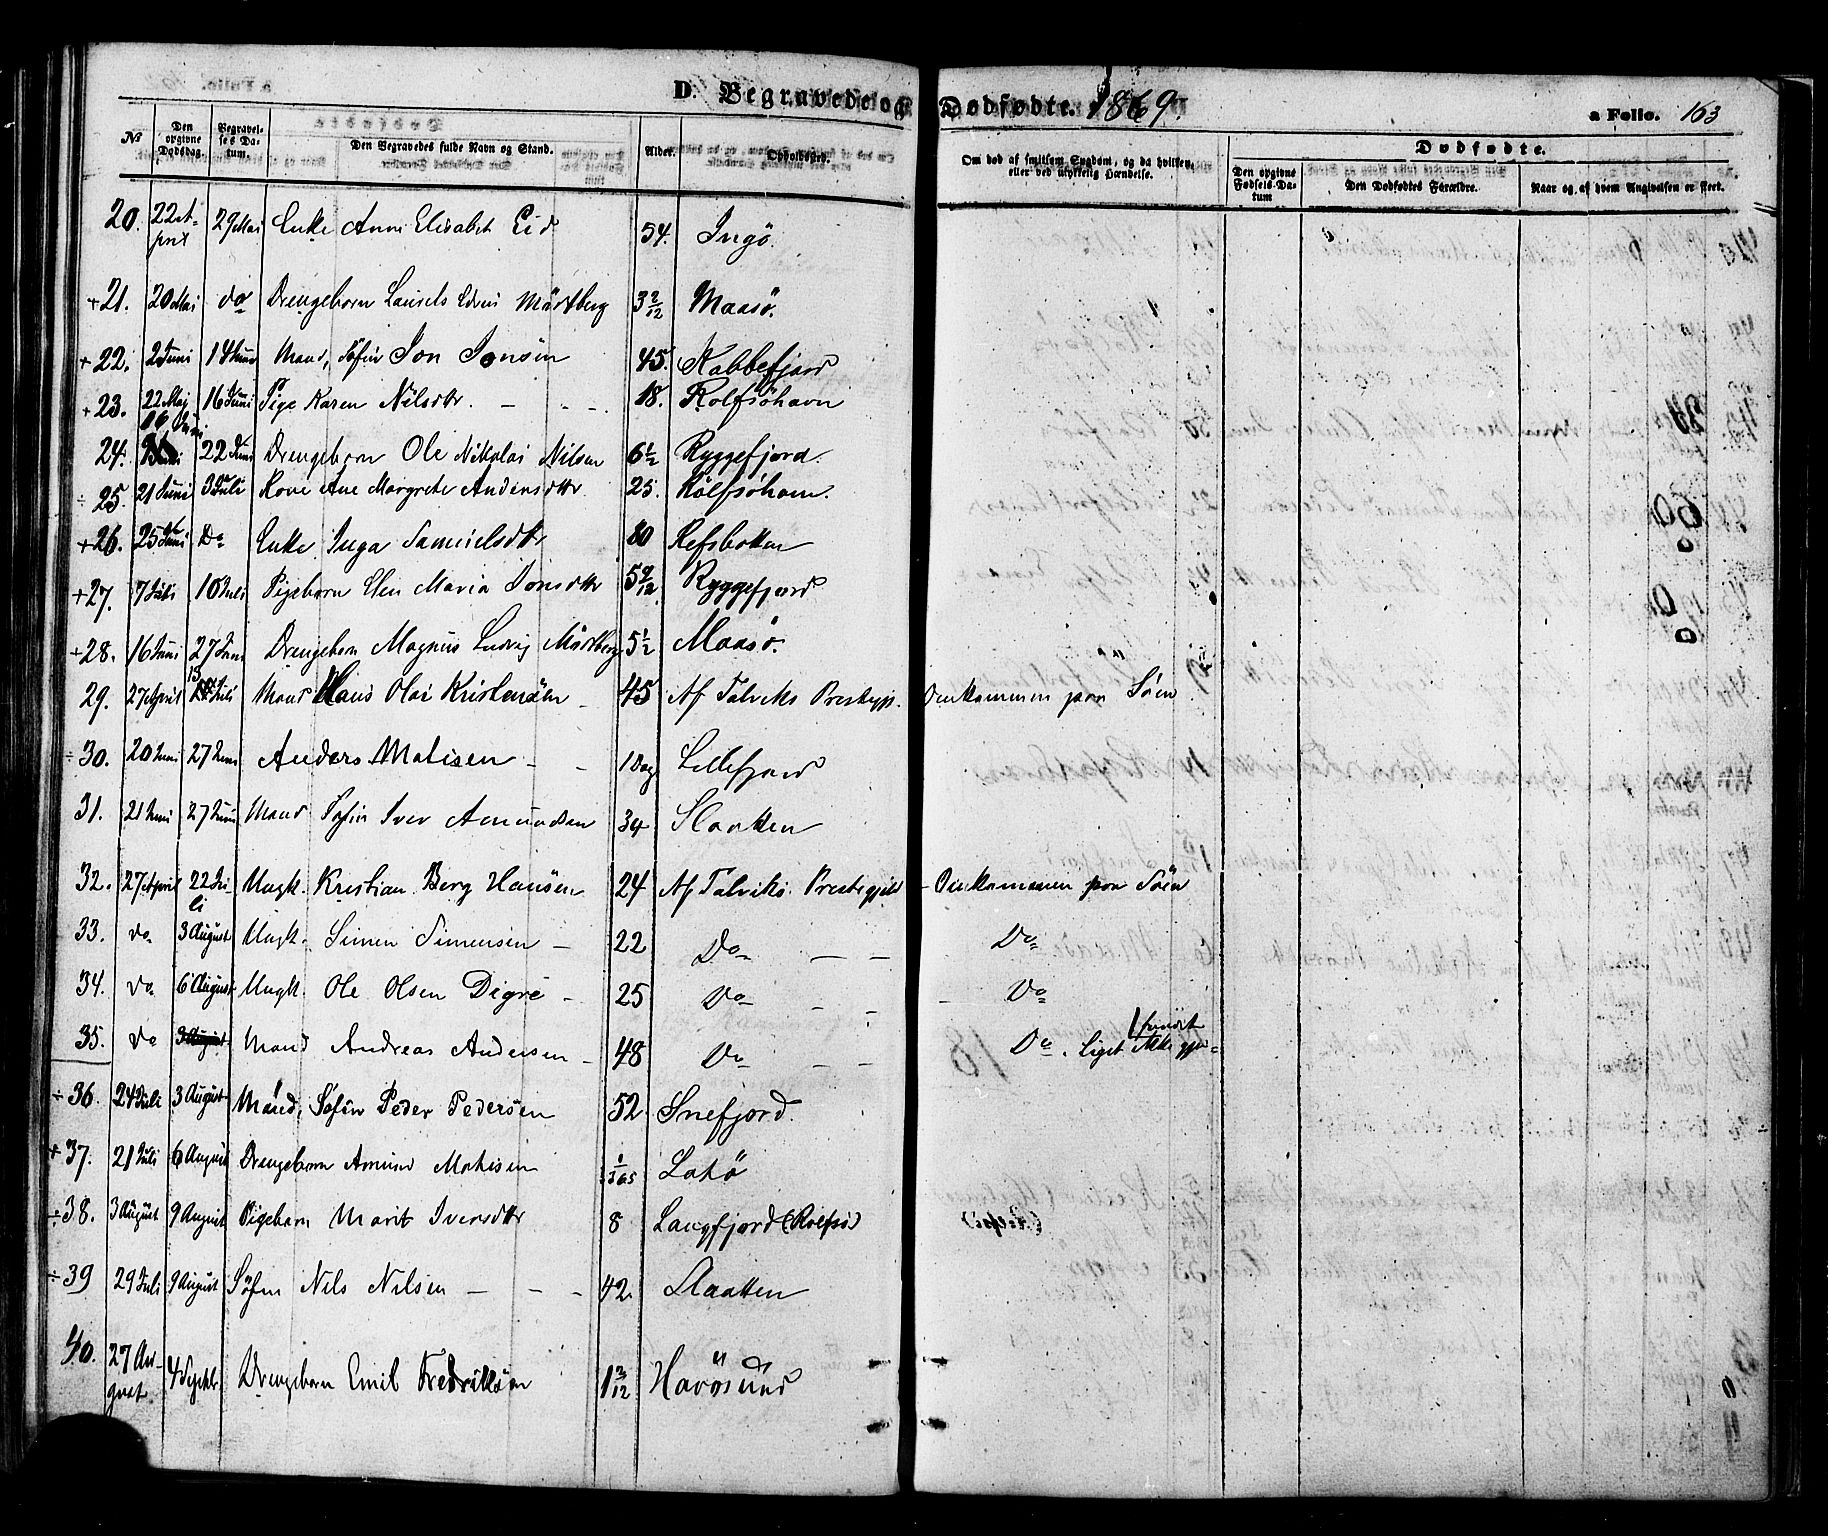 D. Begravede og Dødfødte. 1869. a Folio. 163
№ Den opgivne Dødsdag. Begravelses Datum. Den Begravedes fulde Navn og Stand. Alder. Opholdssted. Om død af smitsom Sygdom, og da hvilken, eller ved ulykkelig Hændelse. Dødfødte.
Den opgivne Fødsels-Datum Den Dødfødtes Forældre. Naar og af hvem Angivelsen er skeet.
20. 22 April 29 Mai Enke Anne Elisabet Eid 54. Ingö.
+21. 20 Mai do Drengebarn Edvin Märtberg 3 2/12 Maasö.
+22. 2 Juni 14 Juni Mand, Söfin Jon Jonsen 45. Kobbefjord
+23. 22 Mai 16 Juni Pige Karen Nilsdtr. — - -. 18. Rolfsöhavn
24. 16 Juni 22 Juni Drengebarn Ole Nikolai Nilsen 6 1/2 Ryggefjord.
÷25. 21 Juni 3 Juli Kone Ane Margrete Andersdtr 25. Rolfsöhavn.
+26. 25 Juni Do Enke Inga Samuelsdtr 80 Refsbotten
+27. 7 Juli 10 Juli Pigebarn Elen Maria Jonsdtr 5 9/12 Ryggefjord
÷28. 16 Juni 27 Juni Drengebarn Magnus Ludvig Märtberg 5 1/2 Maasö.
29. 27 April 15 Juli Mand Hans Olai Kristensen - 45 Af Talviks Prestegj. Omkommen paa Söen
÷30. 20 Juni 27 Juni Anders Matisen - - 1 Dag Lillefjord
31. 21 Juni 27 Juni Mand Söfin Iver Amundsen 34 Slaatten
32. 27 April 22 Juli Ungk. Kristian Berg Hansen 24 Af Talviks Prestegjeld - Omkommen paa Söen
33. do 3 August Ungk. Simen Simensen — 22 Do — — Do
34. do 6 August Ungk. Ole Olsen Digre — 25 Do - - - Do
35. do 3 August Mand Andreas Andersen — 48 Do — — Do. Liget ikke
÷36. 24 Juli 3 August Mand, Söfin Peder Pedersen 52 Snefjord.
+37. 21 Juli 6 August Drengebarn Amund Mathisen 1/365 Latö
÷38. 3 August 9 August Pigebarn Marit Iversdtr 8 Langfjord (Rolfsö)
÷39 29 Juli 9 August Söfin Nils Nilsen — — - 42. Slaatten
40. 27 August 4 Septbr. Drengebarn Emil Fredriksen 1 3/12 Havösund